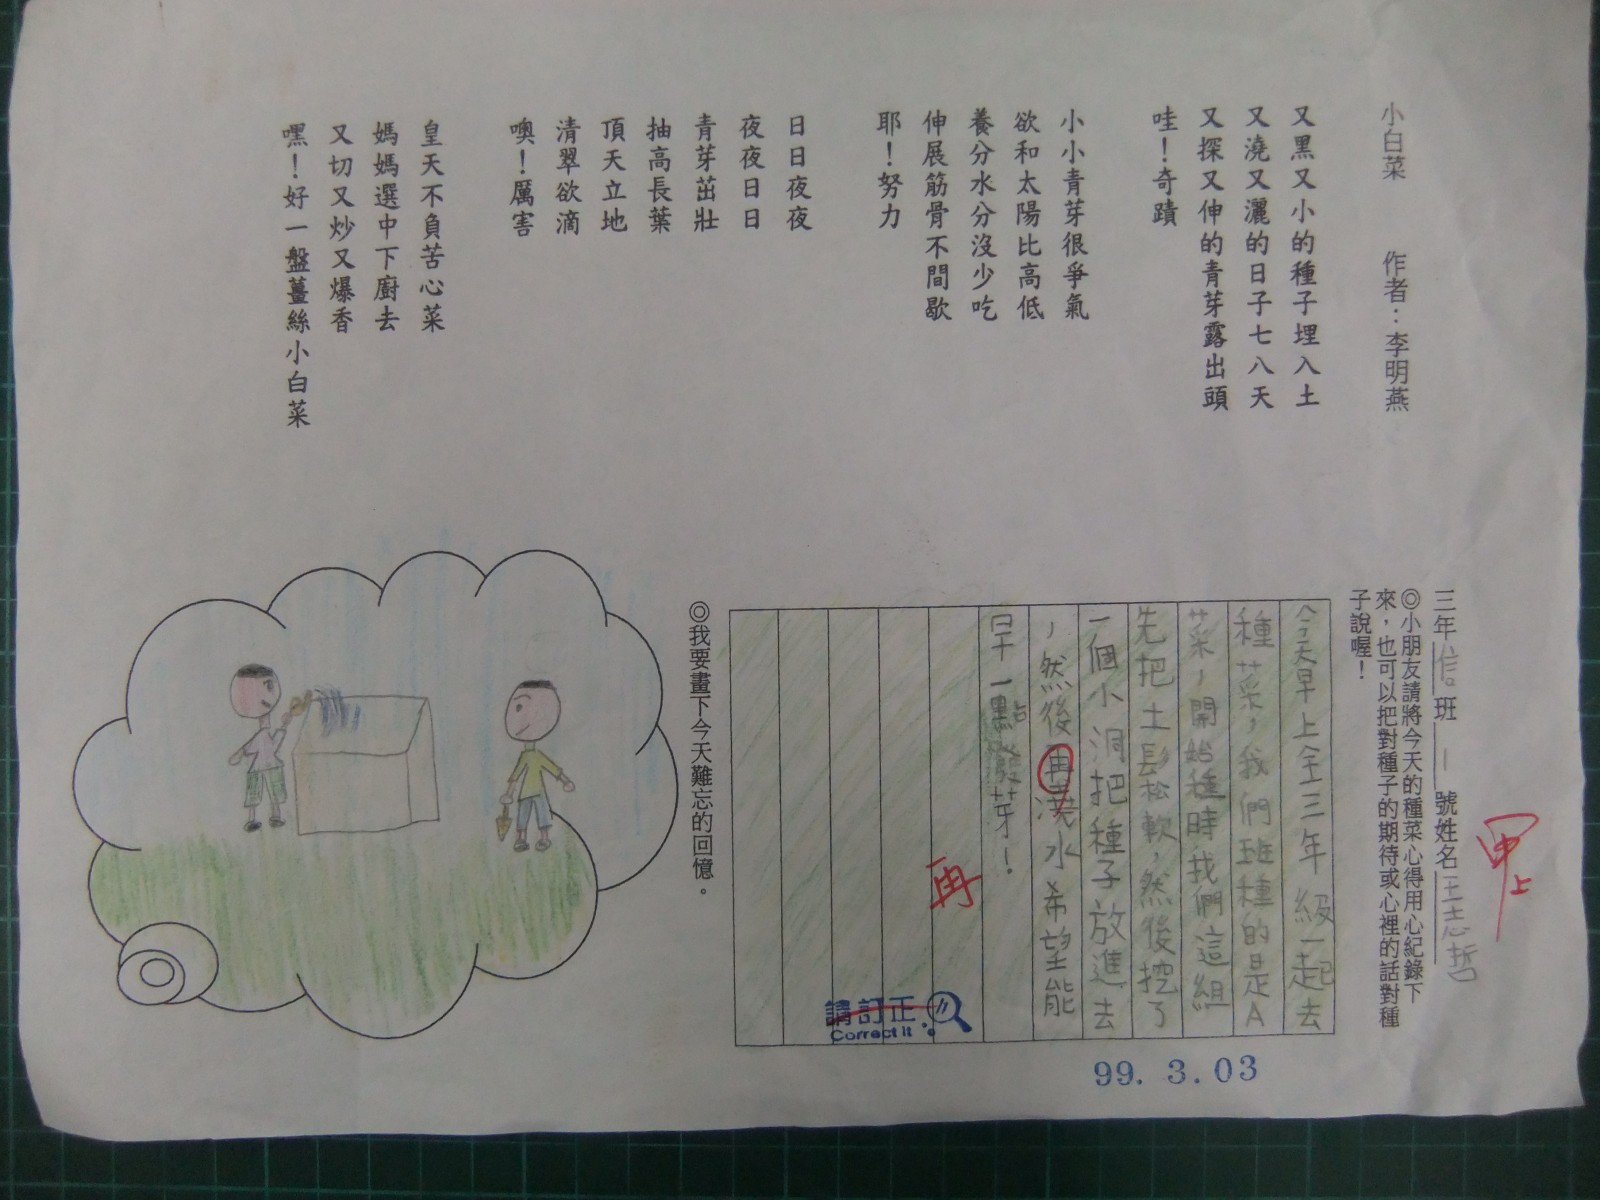 小白菜 作者：李明燕
又黑又小的種子埋入土
又澆又灑的日子七八天
又探又伸的青芽露出頭
哇！奇蹟
小小青芽很爭氣
欲和太陽比高低
養分水分沒少吃
伸展筋骨不間歇
耶！努力
日日夜夜
夜夜日日
青芽茁壯
抽高長葉
頂天立地
清翠欲滴
噢！厲害
皇天不負苦心菜
媽媽選中下廚去
又切又炒又爆香
嘿！好一盤薑絲小白菜
甲上
三年信班一號姓名王志哲
◎小朋友請將今天的種菜心得用心紀錄下
來，也可以把對種子的期待或心裡的話對種
子說喔！
今天早上全三年級一起去
種菜，我們班種的是A
菜，開始種時我們這組
先把土鬆松軟，然後挖了
一個小洞把種子放進去
，然後再澆水希望能
早一點發芽！
再
請訂正
Correct it
99. 3. 03
◎我要畫下今天難忘的回憶。